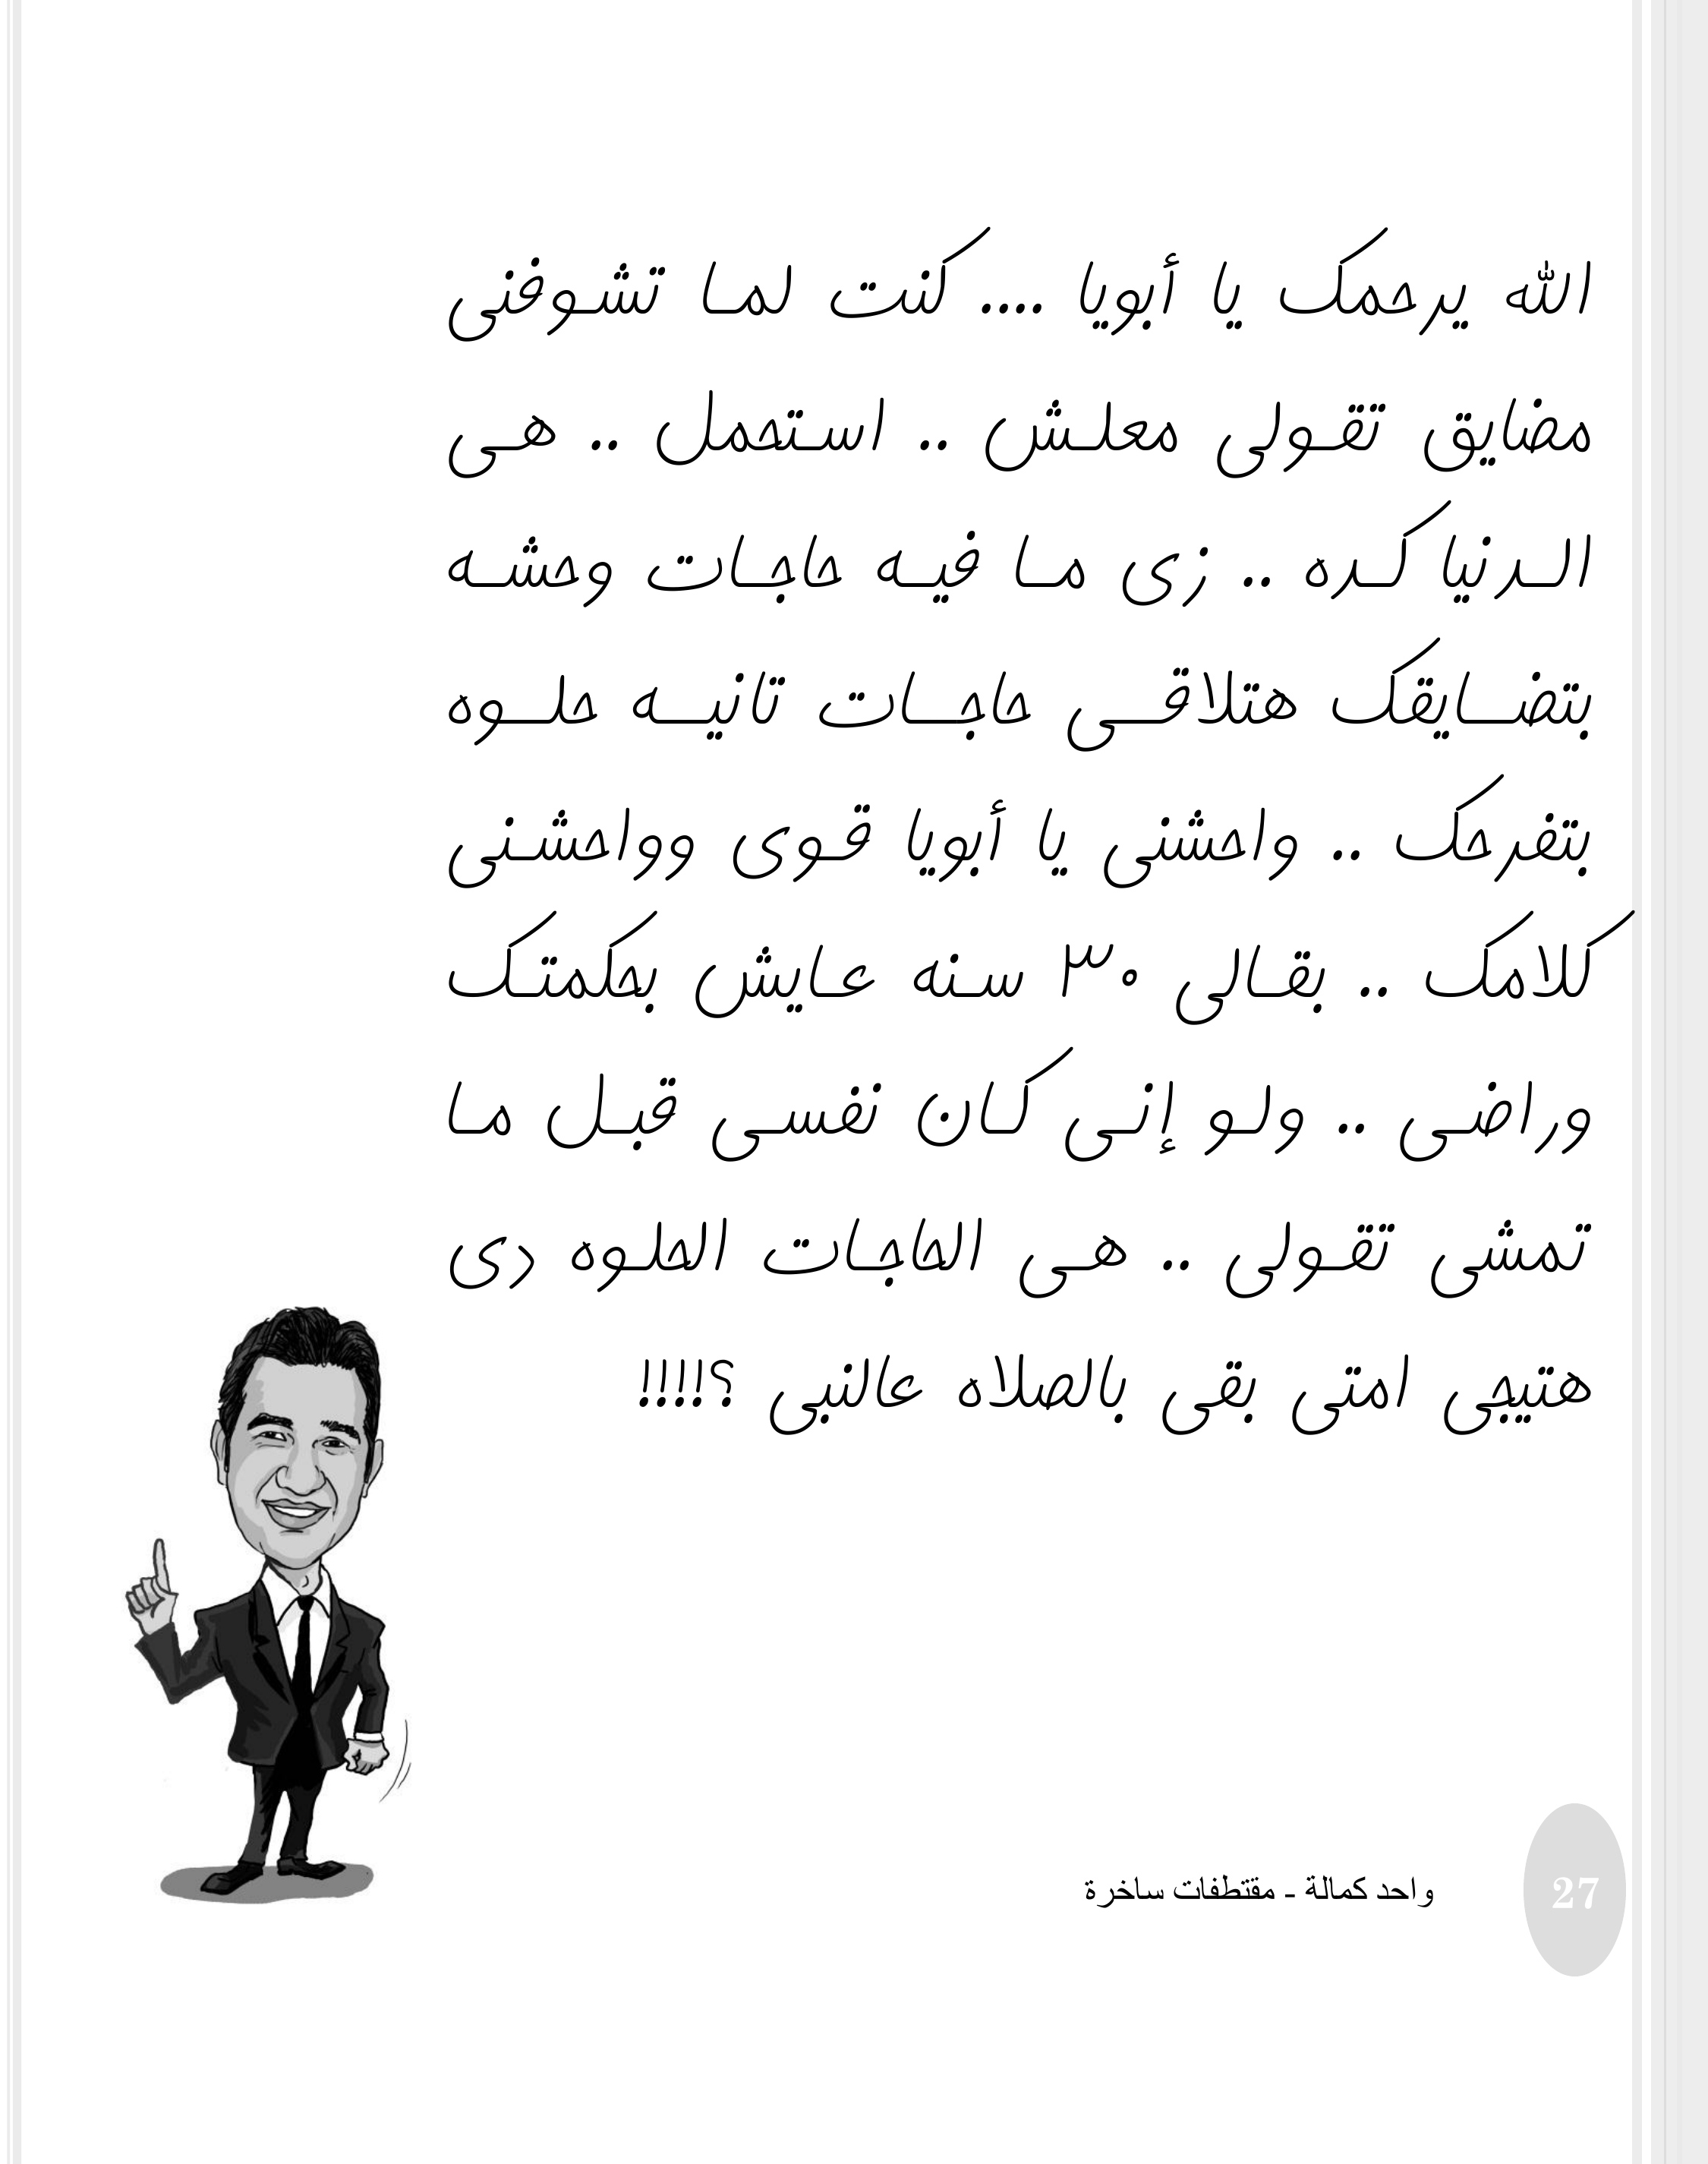 الله يرحمك يا أبويا .... كنت لما تشوفنى
مضايق تقولى معلش .. استحمل .. هى
الدنيا كده .. زى ما فيه حاجات وحشه
بتضايقك هتلاقى حاجات تانيه حلوه
بتفرحك .. واحشنى يا أبويا قوى وواحشنى
كلامك .. بقالى ٣٠ سنه عايش بحكمتك
وراضى .. ولو إنى كان نفسى قبل ما
تمشى تقولى .. هى الحاجات الحلوه دى
هتيجى امتى بقى بالصلاه عالنبى ؟!!!!
واحد كمالة - مقتطفات ساخرة
27